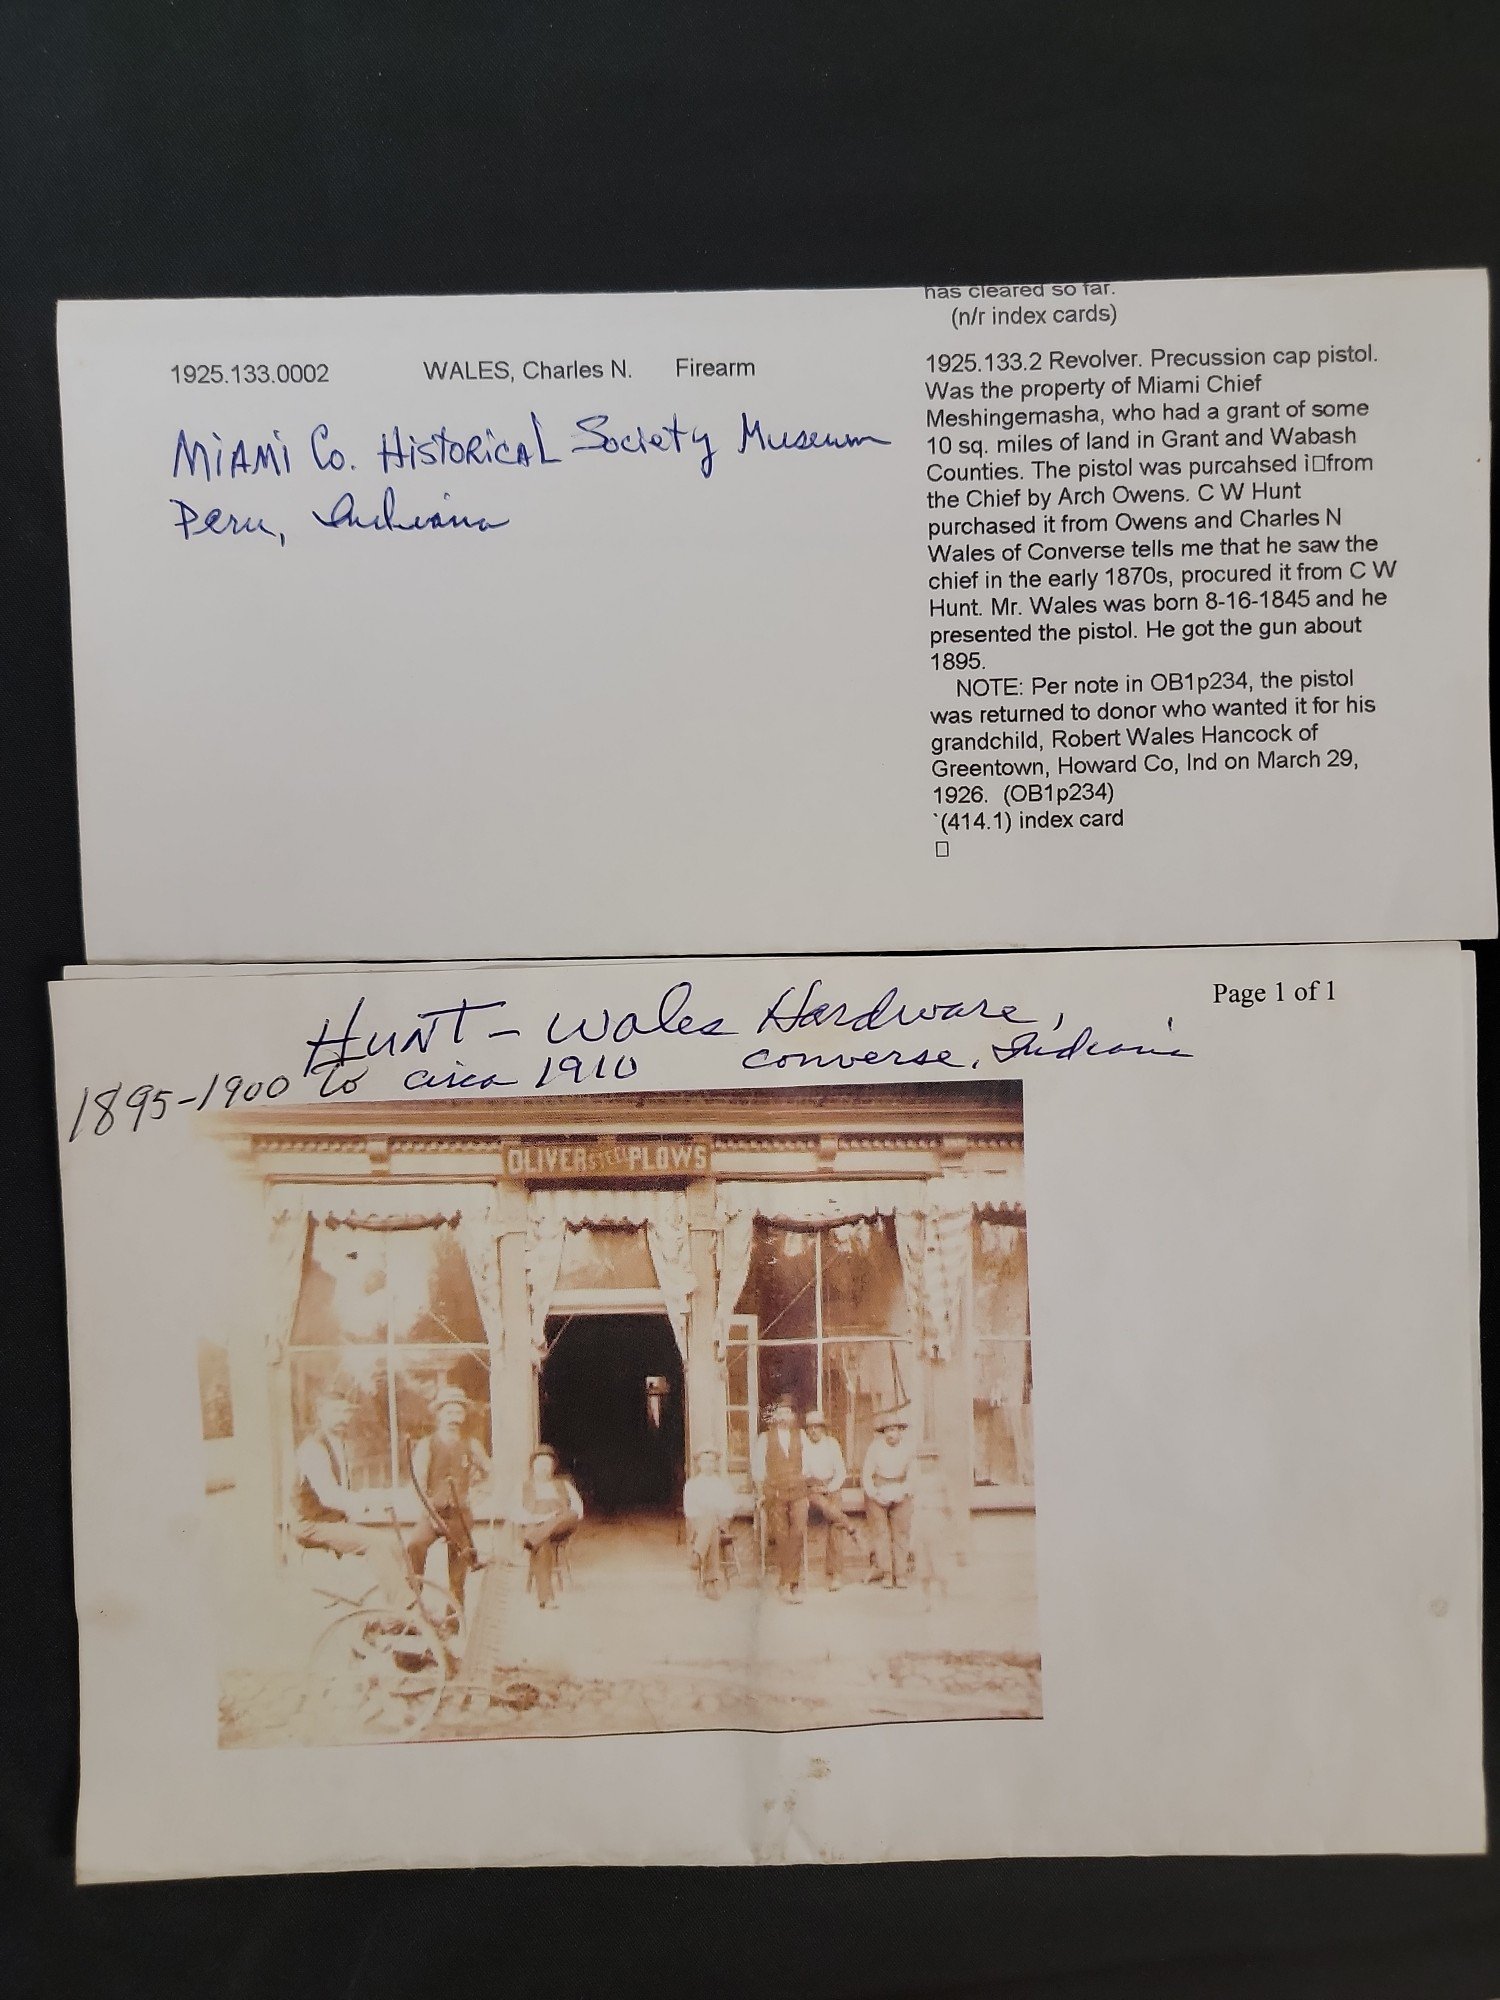 has cleared so far.
(n/r index cards)
1925.133.0002 WALES, Charles N. Firearm
MIAMI Co. HISTORICAL Society Museum
Peru, Indiana
1925.133.2 Revolver. Precussion cap pistol.
Was the property of Miami Chief
Meshingemasha, who had a grant of some
10 sq. miles of land in Grant and Wabash
Counties. The pistol was purcahsed ì□from
the Chief by Arch Owens. C W Hunt
purchased it from Owens and Charles N
Wales of Converse tells me that he saw the
chief in the early 1870s, procured it from C W
Hunt. Mr. Wales was born 8-16-1845 and he
presented the pistol. He got the gun about
1895.
NOTE: Per note in OB1p234, the pistol
was returned to donor who wanted it for his
grandchild, Robert Wales Hancock of
Greentown, Howard Co, Ind on March 29,
1926. (OB1p234)
`(414.1) index card
□
Page 1 of 1
HUNT - Wales Hardware,
1895-1900 to circa 1910 converse, Indiana
OLIVER STEEL PLOWS